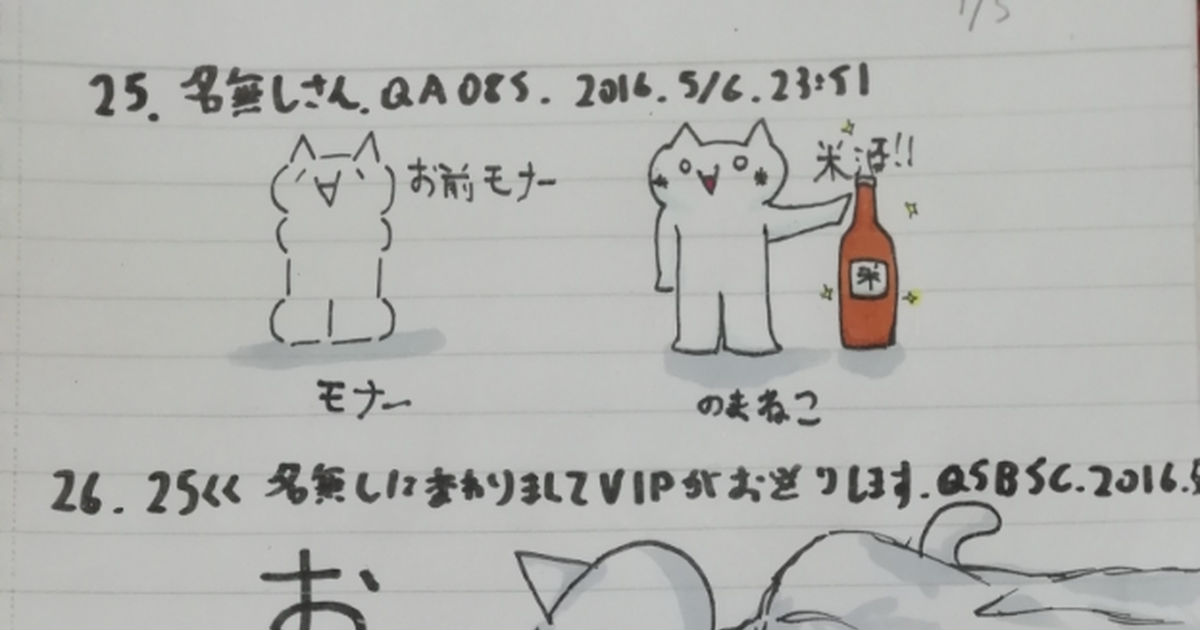 25. 名無しさん. QA085. 2016. 5/6. 23:51
お前モナー
米酒!!
米
モナー
のまねこ
26. 25<< 名無しにまわりましてVIPがお送りします. QSBSC. 2016.5
お